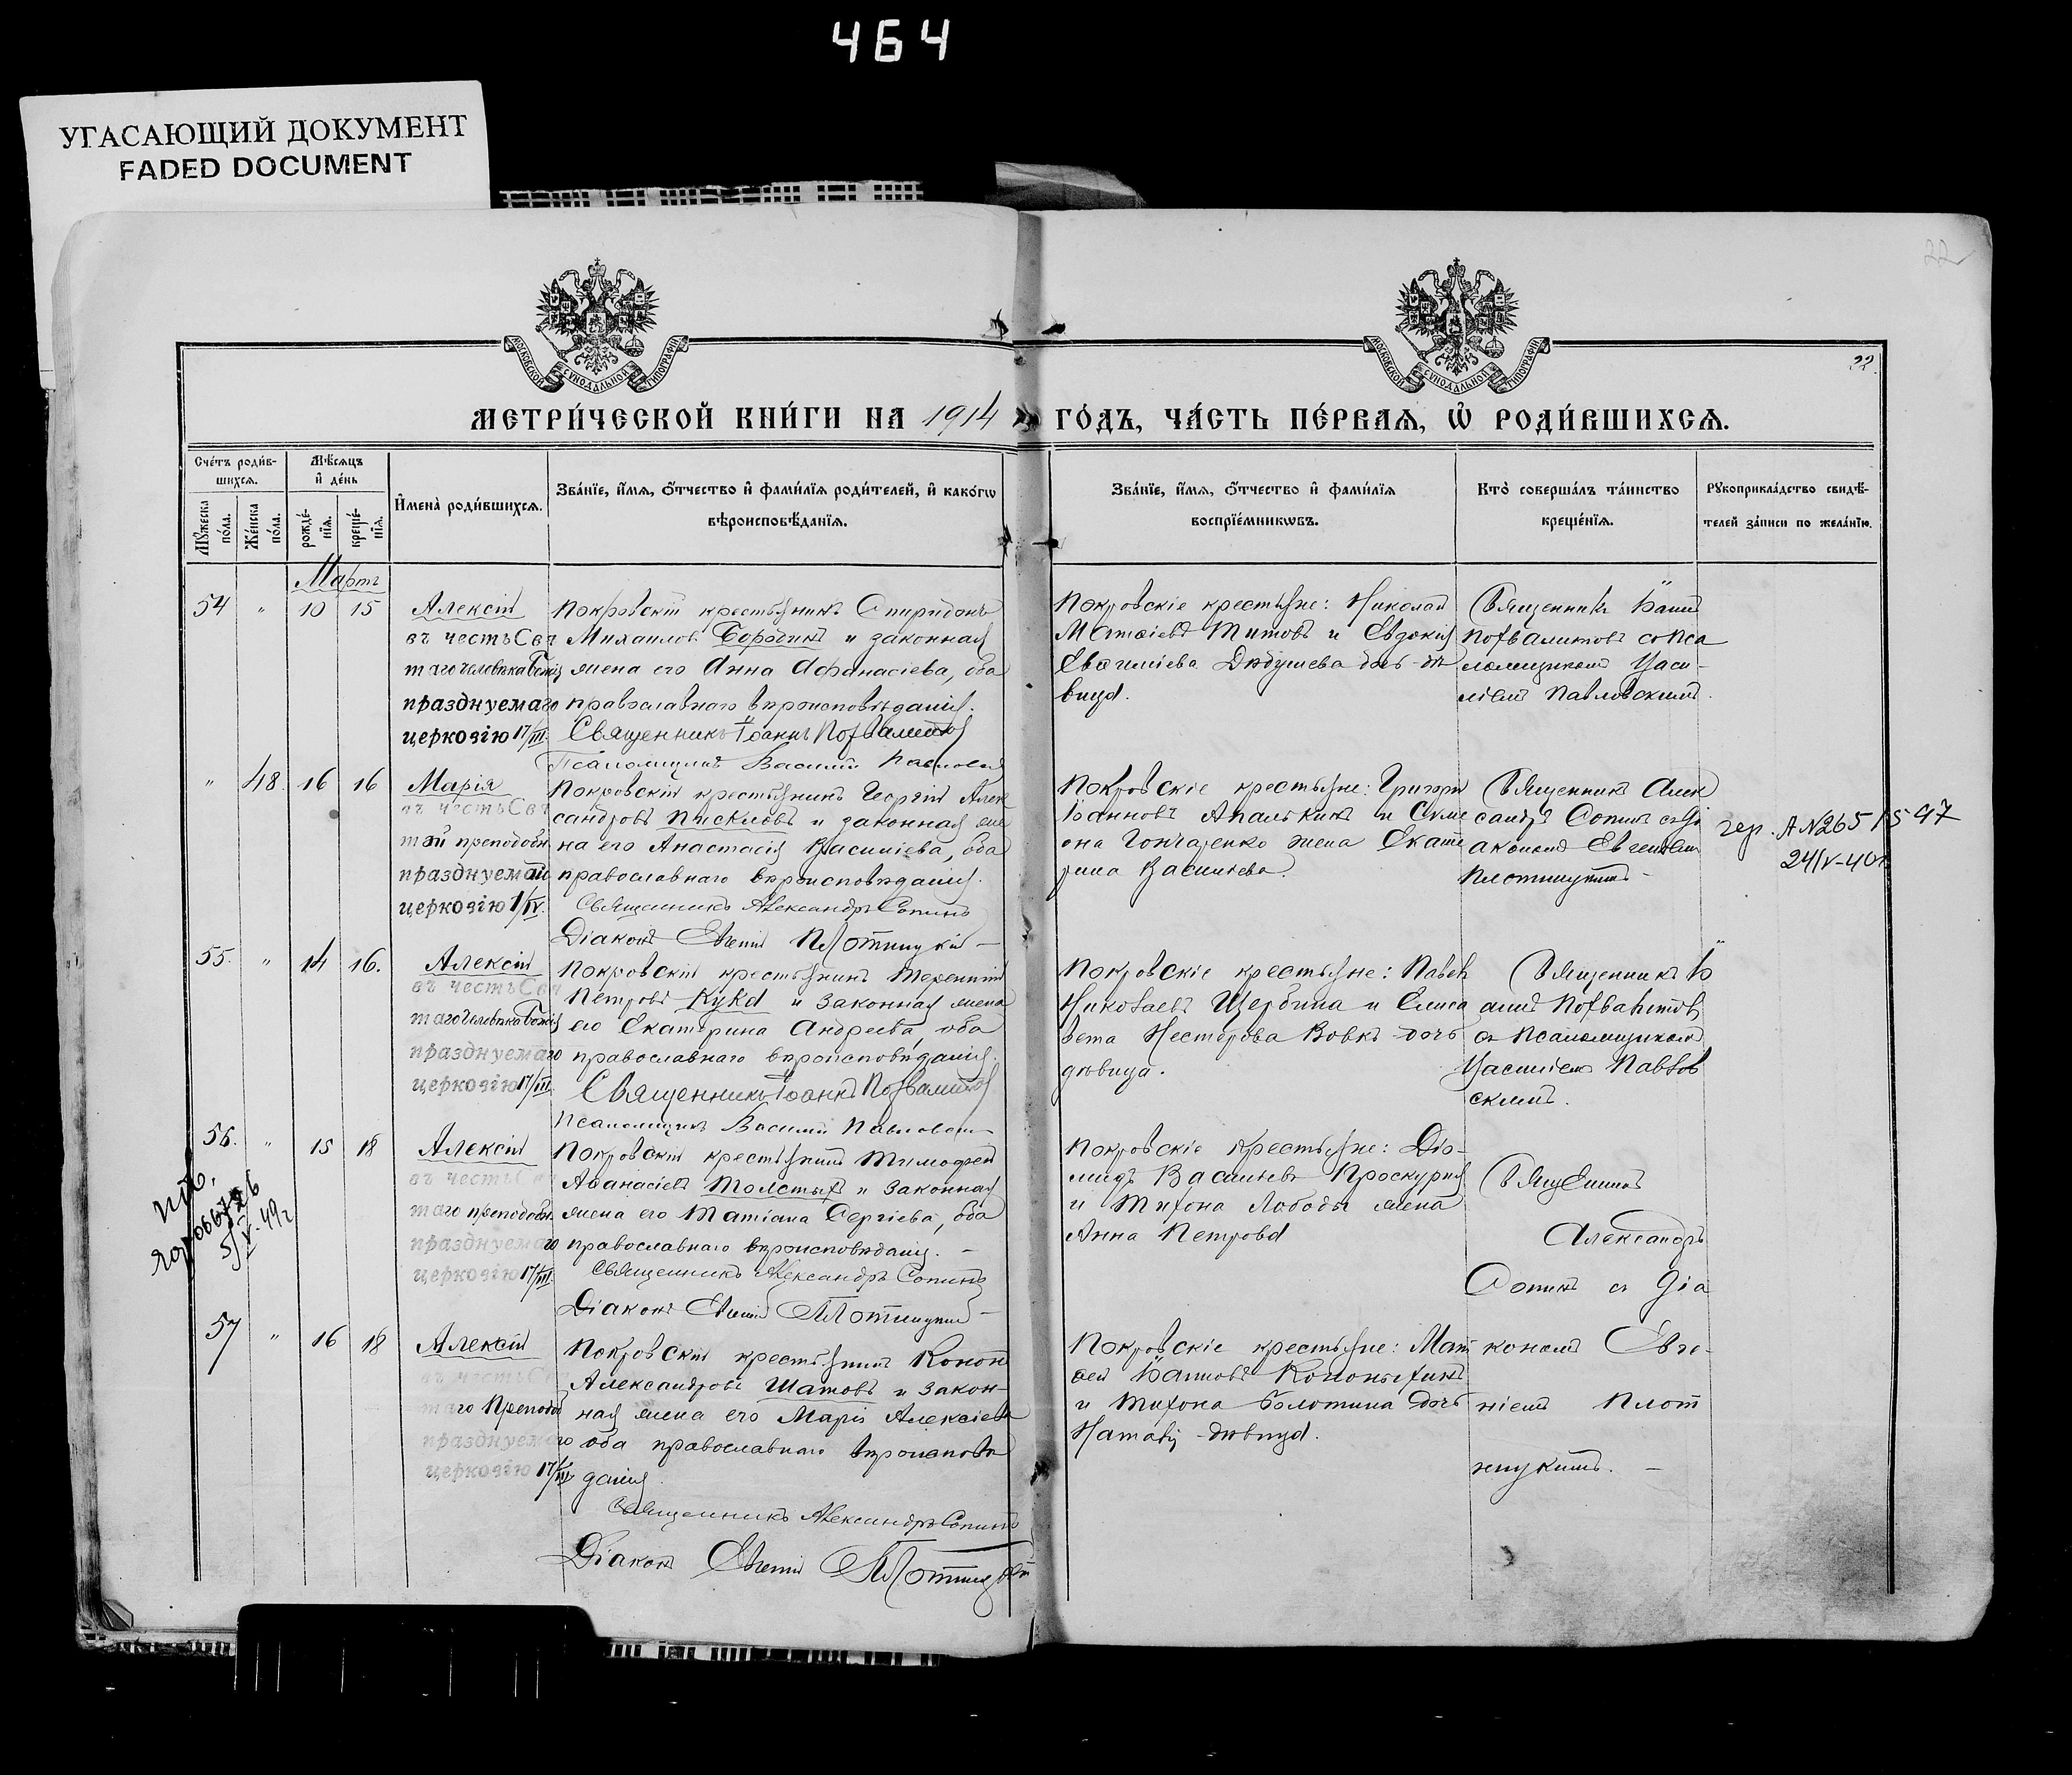 464
УГАСАЮЩИЙ ДОКУМЕНТ
FADED DOCUMENT
МОСКОВСКОЙ СУНОДАЛЬНОЙ ТИПОГРАФІИ
МОСКОВСКОЙ СУНОДАЛЬНОЙ ТИПОГРАФІИ
22
22.
МЕТРИ́ЧЕСКОЙ КНИ́ГИ НА 1914 ГО́ДЪ, ЧА́СТЬ ПЕ́РВАѦ, Ѡ҆ РОДИ́ВШИХСѦ.
Сче́тъ роди́в-
шихсѧ.
Мѣ́сѧцъ
и҆ де́нь
Мꙋ́жеска
по́ла.
Же́нска
по́ла.
рожде́-
нїѧ.
креще́-
нїѧ.
И҆мена̀ роди́вшихсѧ.
Зва́нїе, и҆́мѧ, ѻ҆́тчество и҆ фами́лїѧ роди́телей, и҆ како́гѡ
вѣроисповѣ́данїѧ.
Зва́нїе, и҆́мѧ, ѻ҆́тчество и҆ фами́лїѧ
воспрїе́мникѡвъ.
Кто̀ соверша́лъ та́инство
креще́нїѧ.
Рꙋкоприкла́дство свидѣ́-
телей за́писи по жела́нїю.
Мартъ
54 " 10 15
Алексій
въ честь Свя
таго Человѣка Божія
празднуемаго
церковію 17/III.
Покровскій крестьянинъ Спиридонъ
Михаиловъ Бородинъ и законная
жена его Анна Афанасіева, оба
православнаго вѣроисповѣданія.
Священникъ Іоаннъ Похвалитовъ
Псаломщикъ Василій Павловскій
Покровскіе крестьяне: Николай
Матѳіевъ Титовъ и Евдокія
Евѳиміева Дѣдушева дочь дѣ
вица.
Священникъ Іоаннъ
Похвалитовъ со пса
ломщикомъ Васи-
ліемъ Павловскимъ.
" 48. 16 16
Марія
въ честь Свя
той преподобн.
празднуемой
церковію 1/IV.
Покровскій крестьянинъ Георгій Алек
сандровъ Пискловъ и законная же
на его Анастасія Василіева, оба
православнаго вѣроисповѣданія.
Священникъ Александръ Сопинъ
Діаконъ Евгеній Плотницкій —
Покровскіе крестьяне: Григорій
Іоанновъ Апалькинъ и Симе
она Гончаренко жена Екате
рина Василіева.
Священникъ Алек
сандръ Сопинъ съ ді
акономъ Евгеніемъ
Плотницкимъ —
А №265
24/IV-40г.
55. " 14 16.
Алексій
въ честь Свя
таго Человѣка Божія
празднуемаго
церковію 17/III.
Покровскій крестьянинъ Терентій
Петровъ Кука и законная жена
его Екатерина Андреева, оба
православнаго вѣроисповѣданія.
Священникъ Іоаннъ Похвалитовъ
Псаломщикъ Василій Павловскій
Покровскіе крестьяне: Павелъ
Николаевъ Щербина и Елиса
вета Несторова Вовкъ дочь
дѣвица.
Священникъ Іо
аннъ Похвалитовъ
съ Псаломщикомъ
Василіемъ Павлов
скимъ.
56. " 15 18
5/V-49г
Алексій
въ честь Свя
таго преподобн.
празднуемаго
церковію 17/III.
Покровскій крестьянинъ Тимофей
Аѳанасіевъ Толстыхъ и законная
жена его Татіана Сергіева, оба
православнаго вѣроисповѣданія. —
Священникъ Александръ Сопинъ
Діаконъ Евгеній Плотницкій —
Покровскіе крестьяне: Діо-
мидъ Василіевъ Проскурня
и Тихона Лободы жена
Анна Петрова
Священникъ
Александръ
Сопинъ съ діа
57 " 16 18
Алексій
въ честь Свя
таго Преподоб
празднуемаго
церковію 17/III
Покровскій крестьянинъ Кононъ
Александровъ Шатовъ и закон-
ная жена его Марія Алексіева
оба православнаго вѣроисповѣ
данія.
Священникъ Александръ Сопинъ
Діаконъ Евгеній Плотницкій
Покровскіе крестьяне: Мат
ѳей Іоанновъ Кононыхинъ
и Тихона Болотина дочь
Наталія - дѣвица.
кономъ Евге-
ніемъ Плот
ницкимъ. —